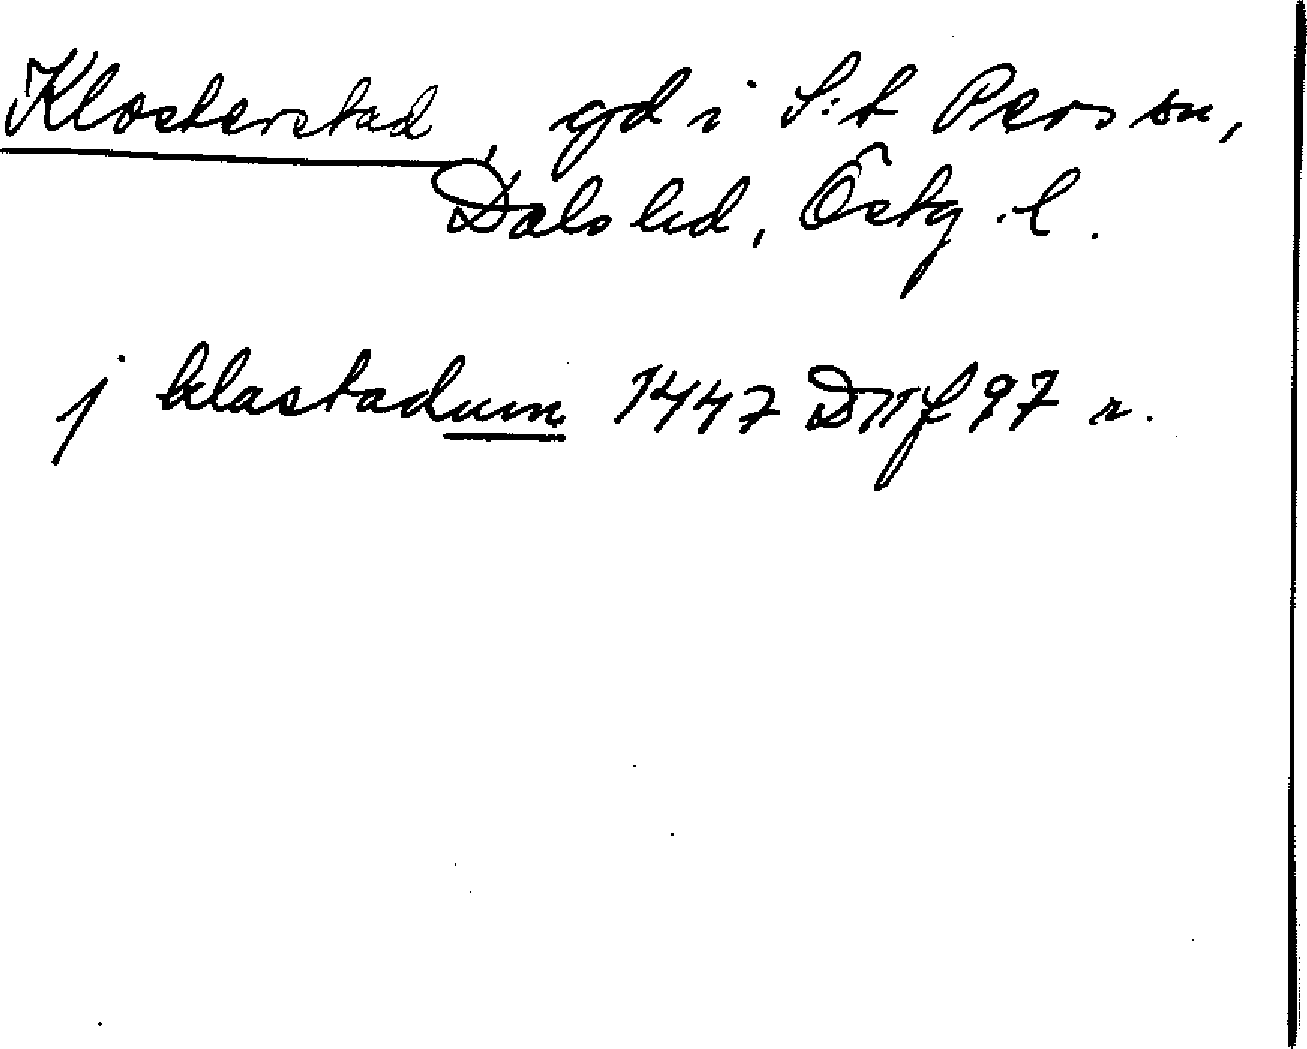 Klosterstad, gd i S:t Pers sn,
Dals hd, Östg. l.
j klastadum 1447 D11 f 97 r.